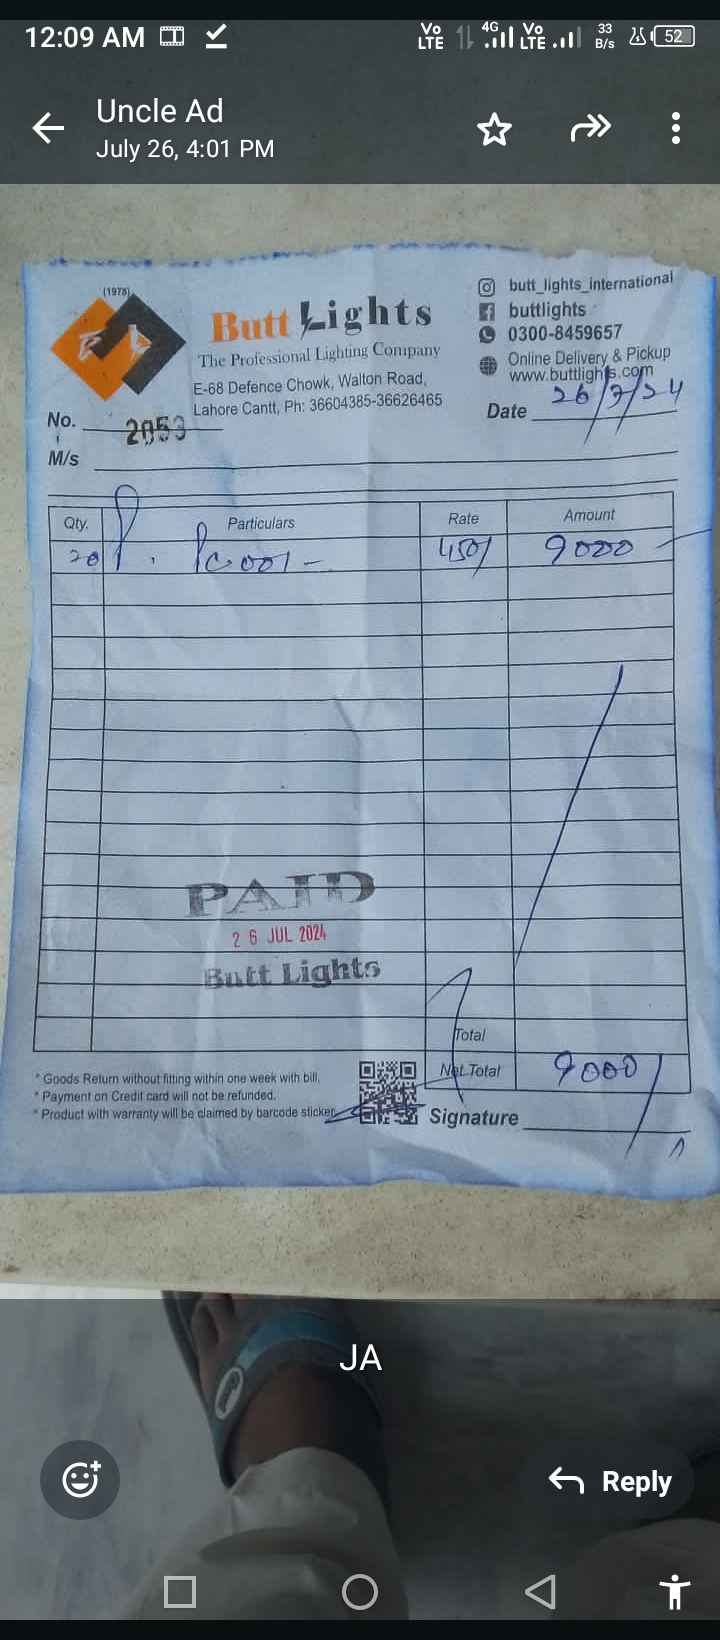 12:09 AM
Vo LTE 4G Vo LTE 33 B/s 52
Uncle Ad
July 26, 4:01 PM
(1978)
Butt Lights
The Professional Lighting Company
E-68 Defence Chowk, Walton Road,
Lahore Cantt, Ph: 36604385-36626465
butt_lights_international
buttlights
0300-8459657
Online Delivery & Pickup
www.buttlights.com
No. 2053
Date 26/7/24
M/s
Qty. Particulars Rate Amount
20 450/ 9000
PAID
26 JUL 2024
Butt Lights
Total
Net Total 9000/
* Goods Return without fitting within one week with bill.
* Payment on Credit card will not be refunded.
* Product with warranty will be claimed by barcode sticker.
Signature
JA
Reply